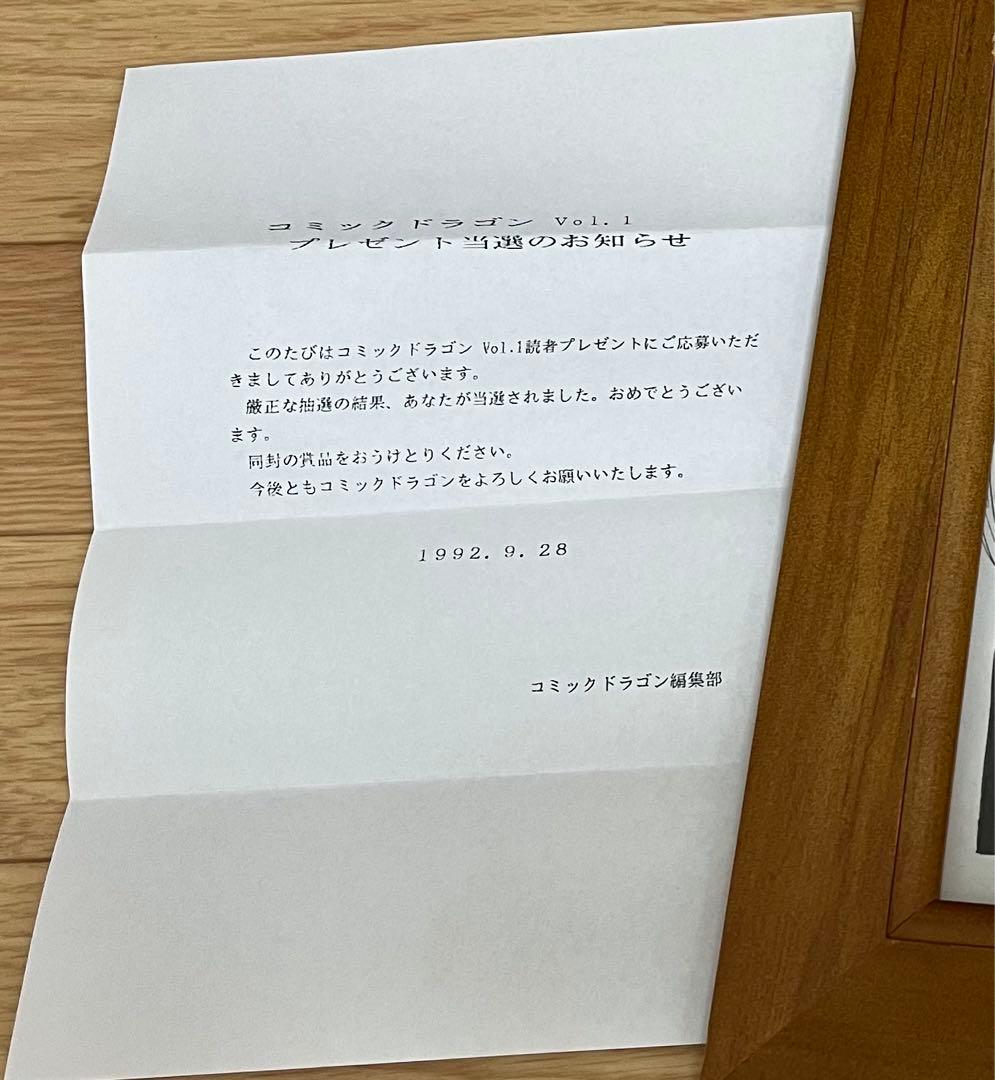 コミックドラゴン Vol.1
プレゼント当選のお知らせ
このたびはコミックドラゴン Vol.1読者プレゼントにご応募いただ
きましてありがとうございます。
厳正な抽選の結果、あなたが当選されました。おめでとうござい
ます。
同封の賞品をおうけとりください。
今後ともコミックドラゴンをよろしくお願いいたします。
1992.9.28
コミックドラゴン編集部